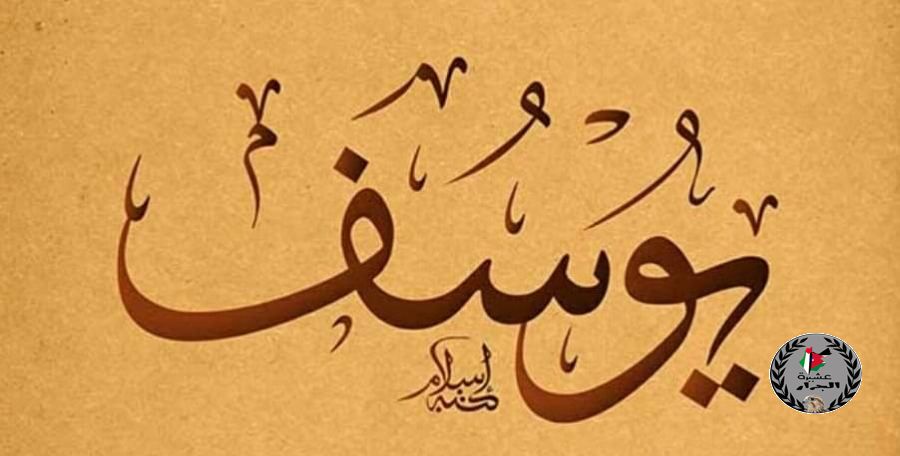 يُوسُف
كتبه إسلام
عشيرة
الجرار